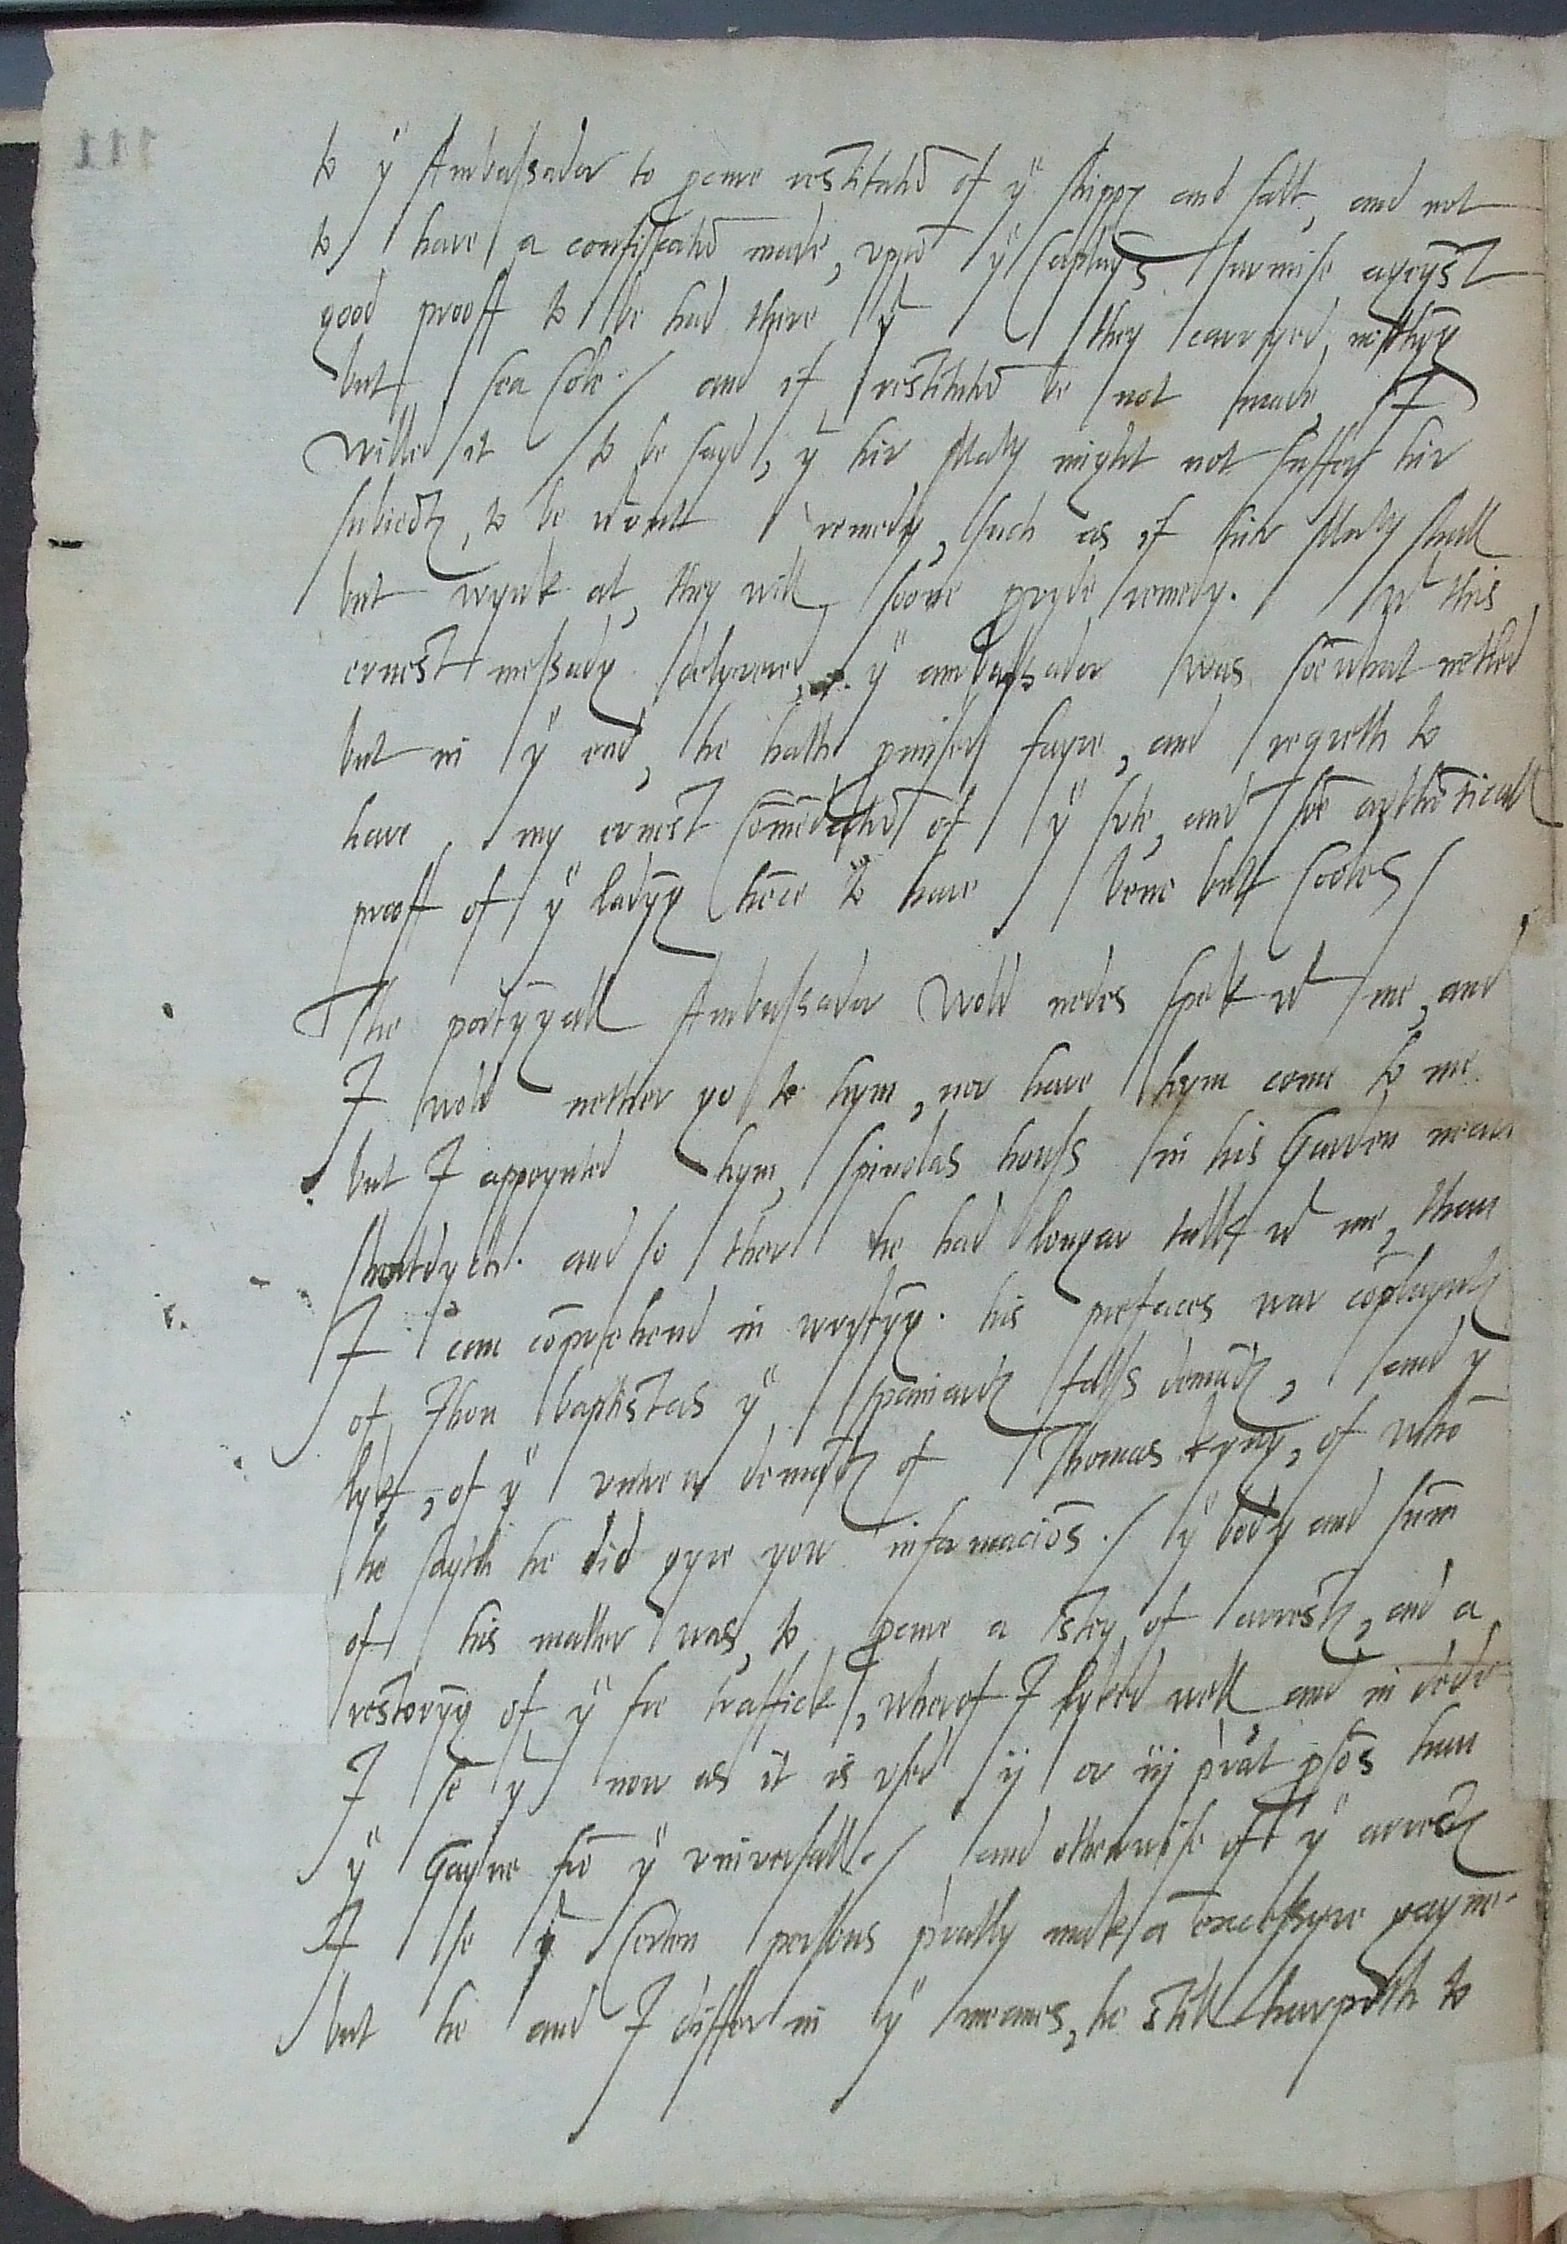 to yͤ Ambassador to pcure restitutiō of yͤ shippꝭ and salt, and not
to have a confiscatiō made, vppō yͤ Captēs surmise agaynst
good prooff to be had there yᵗ they carryed nothyng
but sea Cole ./ and if restitutiō be not made, I
willed it to be sayd, yᵗ hir Maty might not suffer hir
subiectꝭ, to be wᵗout remedy, such as if hir Maty shall
but wynk at, they will soone pvyde remedy. / wᵗ this
ernest messadg delyvered, yͤ ambassador was sōewhat netled
but in yͤ end, he hath pmised fayre, and reqreth to
have my ernest Cōmēdatiō of yͤ sute, and sōe awthēticall
prooff of yͤ ladyng hēce to have bene but Cooles /
The portyngall Ambassador wold nedes spek wᵗ me, and
I wold nether go to hym, nor have hym come to me
but I appoynted hym, Spinolas howss in his Garden neare
shordych. and so ther he had longar talk wᵗ me, than
I can cōprehend in wrytyng. his prefaces war cōplayntꝭ
of Ihon baptistas yͤ spaniardꝭ falss demādꝭ, and yͤ
lyk, of yͤ vntrew demādꝭ of Thomas kyng, of whō
he sayth he did gyve you informaciōs ./ yͤ body and sum̄
of his matter was, to pcure a stey of arrestꝭ, and a
restoryng of yͤ fre traffick, wherof I lyked well and in dede
I se yᵗ now as it is vsed ij or iij pvat psōs have
yͤ Gayne frō yͤ vniversall ./ and otherwise of yͤ arrestꝭ
I se yᵗ Certen persons pvatly mak an excessyve gayne.
but he and I differ in yͤ meanes, he still harpeth to